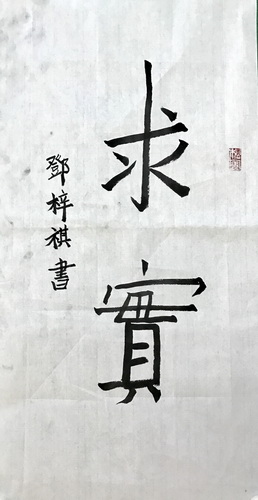 求實
鄧梓祺書